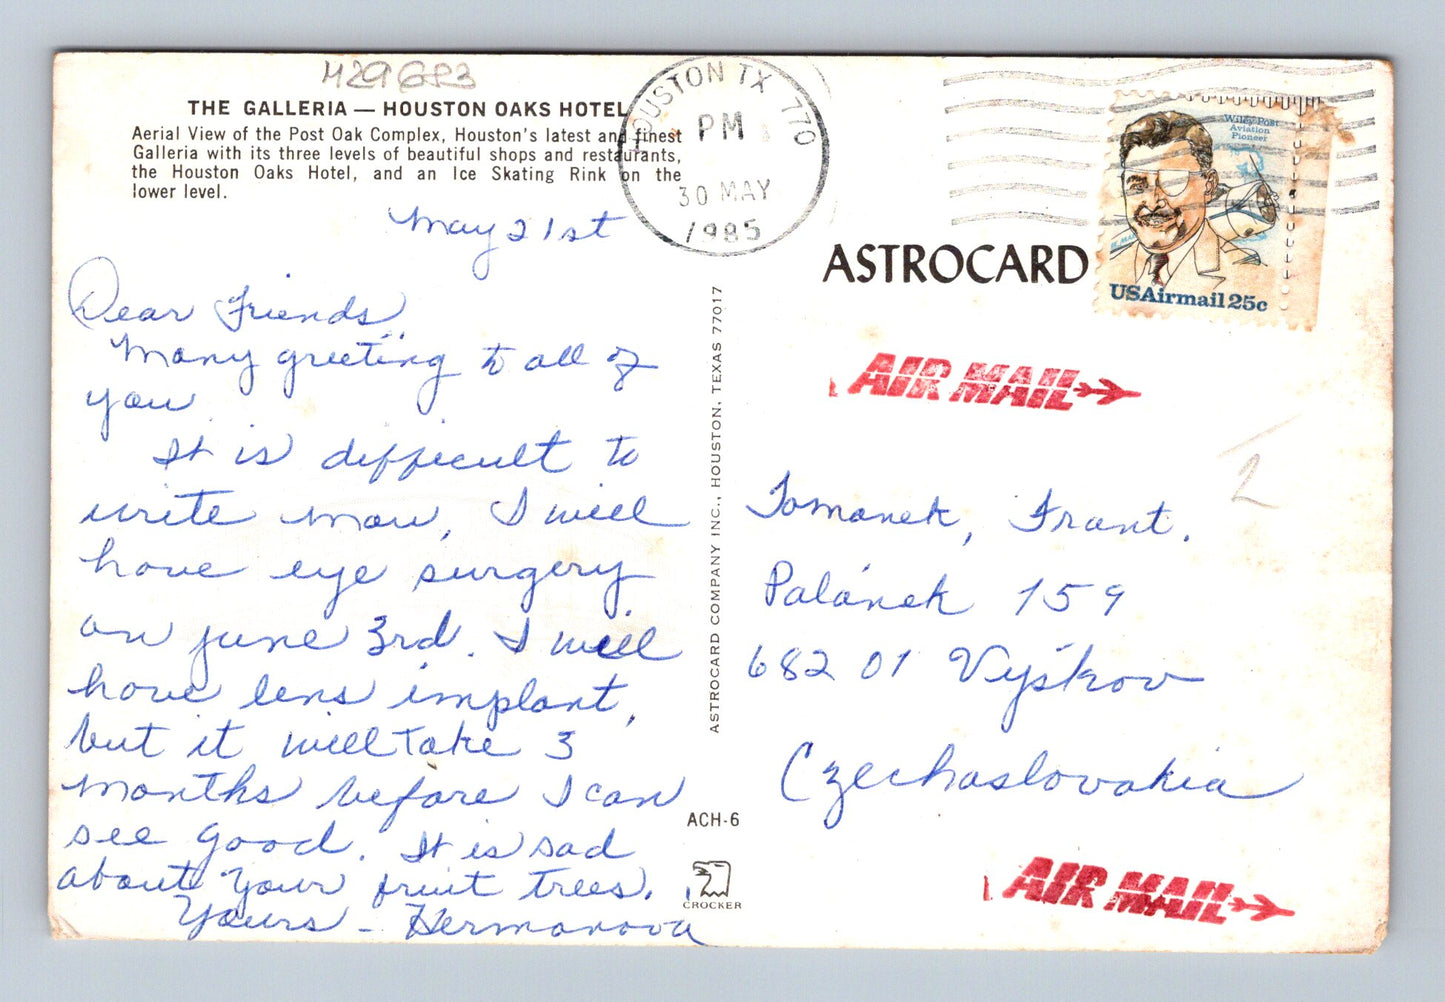 M29GP3
THE GALLERIA — HOUSTON OAKS HOTEL
Aerial View of the Post Oak Complex, Houston's latest and finest
Galleria with its three levels of beautiful shops and restaurants,
the Houston Oaks Hotel, and an Ice Skating Rink on the
lower level.
May 21st
Dear Friends,
Many greeting to all of
you
It is difficult to
write now, I will
have eye surgery
on June 3rd. I will
have lens implant,
but it will Take 3
months before I can
see good. It is sad
about your fruit trees.
Yours - Hermanova
ASTROCARD COMPANY INC., HOUSTON, TEXAS 77017
ACH-6
CROCKER
HOUSTON TX 770
PM
30 MAY
1985
ASTROCARD
Wiley Post
Aviation
Pioneer
USAirmail 25c
AIR MAIL
2
Tomanek, Frant.
Palánek 159
682 01 Vyškov
Czechoslovakia
AIR MAIL